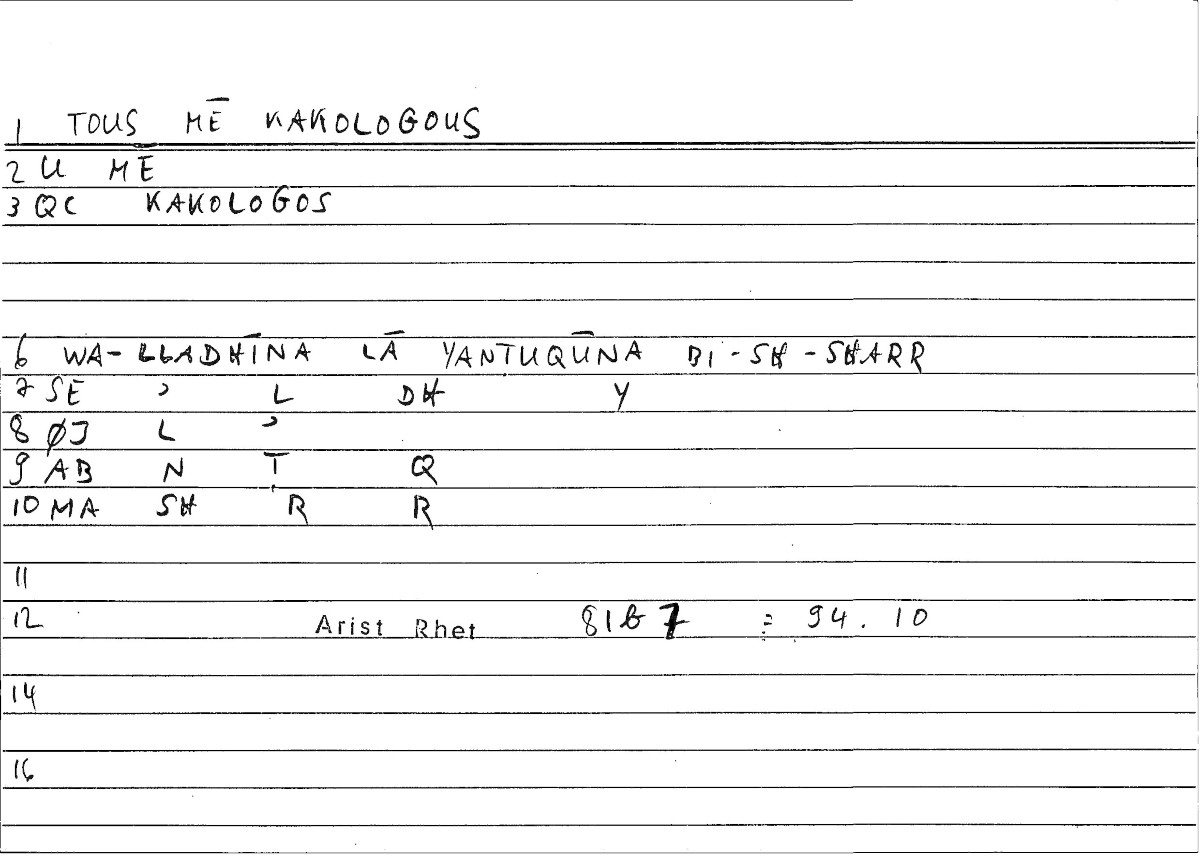 1 TOUS MĒ KAKOLOGOUS
2 U MĒ
3 QC KAKOLOGOS
6 WA-LLADHĪNA LĀ YANTUQŪNA BI-SH-SHARR
7 SE ʾ L DH Y
8 ØJ L ʾ
9 AB N T Q
10 MA SH R R
11
12 Arist Rhet 81b7 = 94.10
14
16